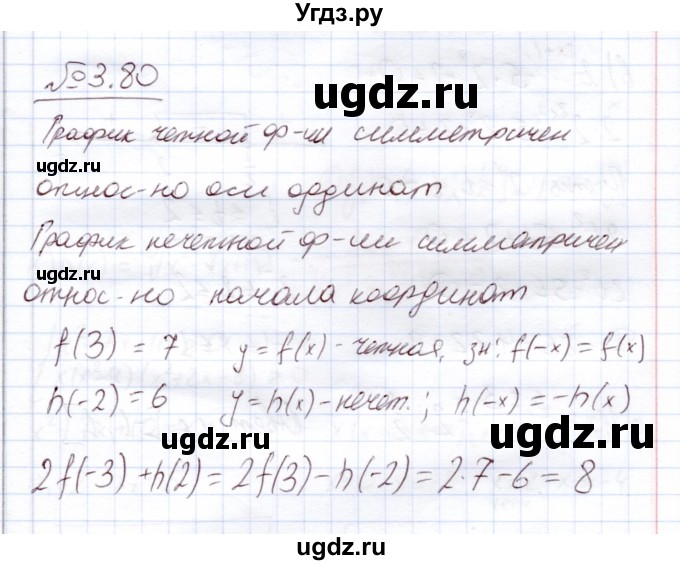 Угдз.ру
№3.80
ugdz.ru
График четной ф-ии симметричен
ugdz.ru
относ-но оси ординат
ugdz.ru
График нечетной ф-ии симметричен
ugdz.ru
относ-но начала координат
f(3) = 7 y = f(x) - четная, зн: f(-x) = f(x)
h(-2) = 6 y = h(x) - нечет.; h(-x) = -h(x)
ugdz.ru
ugdz.ru
2f(-3) + h(2) = 2f(3) - h(-2) = 2·7 - 6 = 8
ugdz.ru